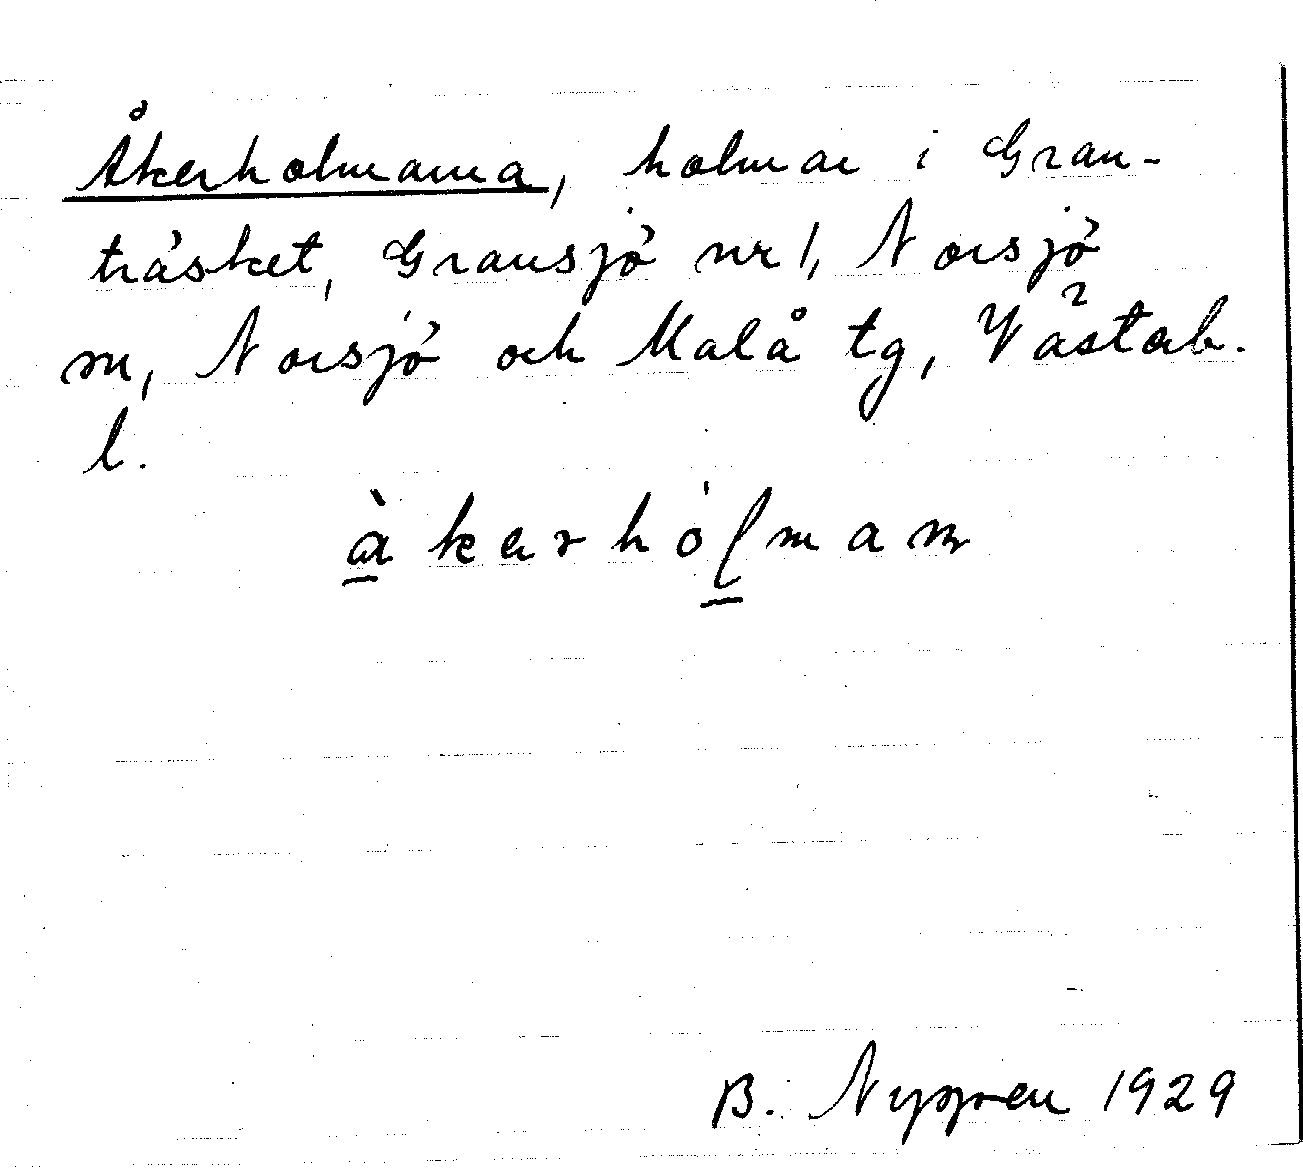 Åkerholmarna, holmar i Gran-
träsket, Gransjö nr 1, Norsjö
m, Norsjö och Malå tg, Västerb.
l.
B. Nygren 1929